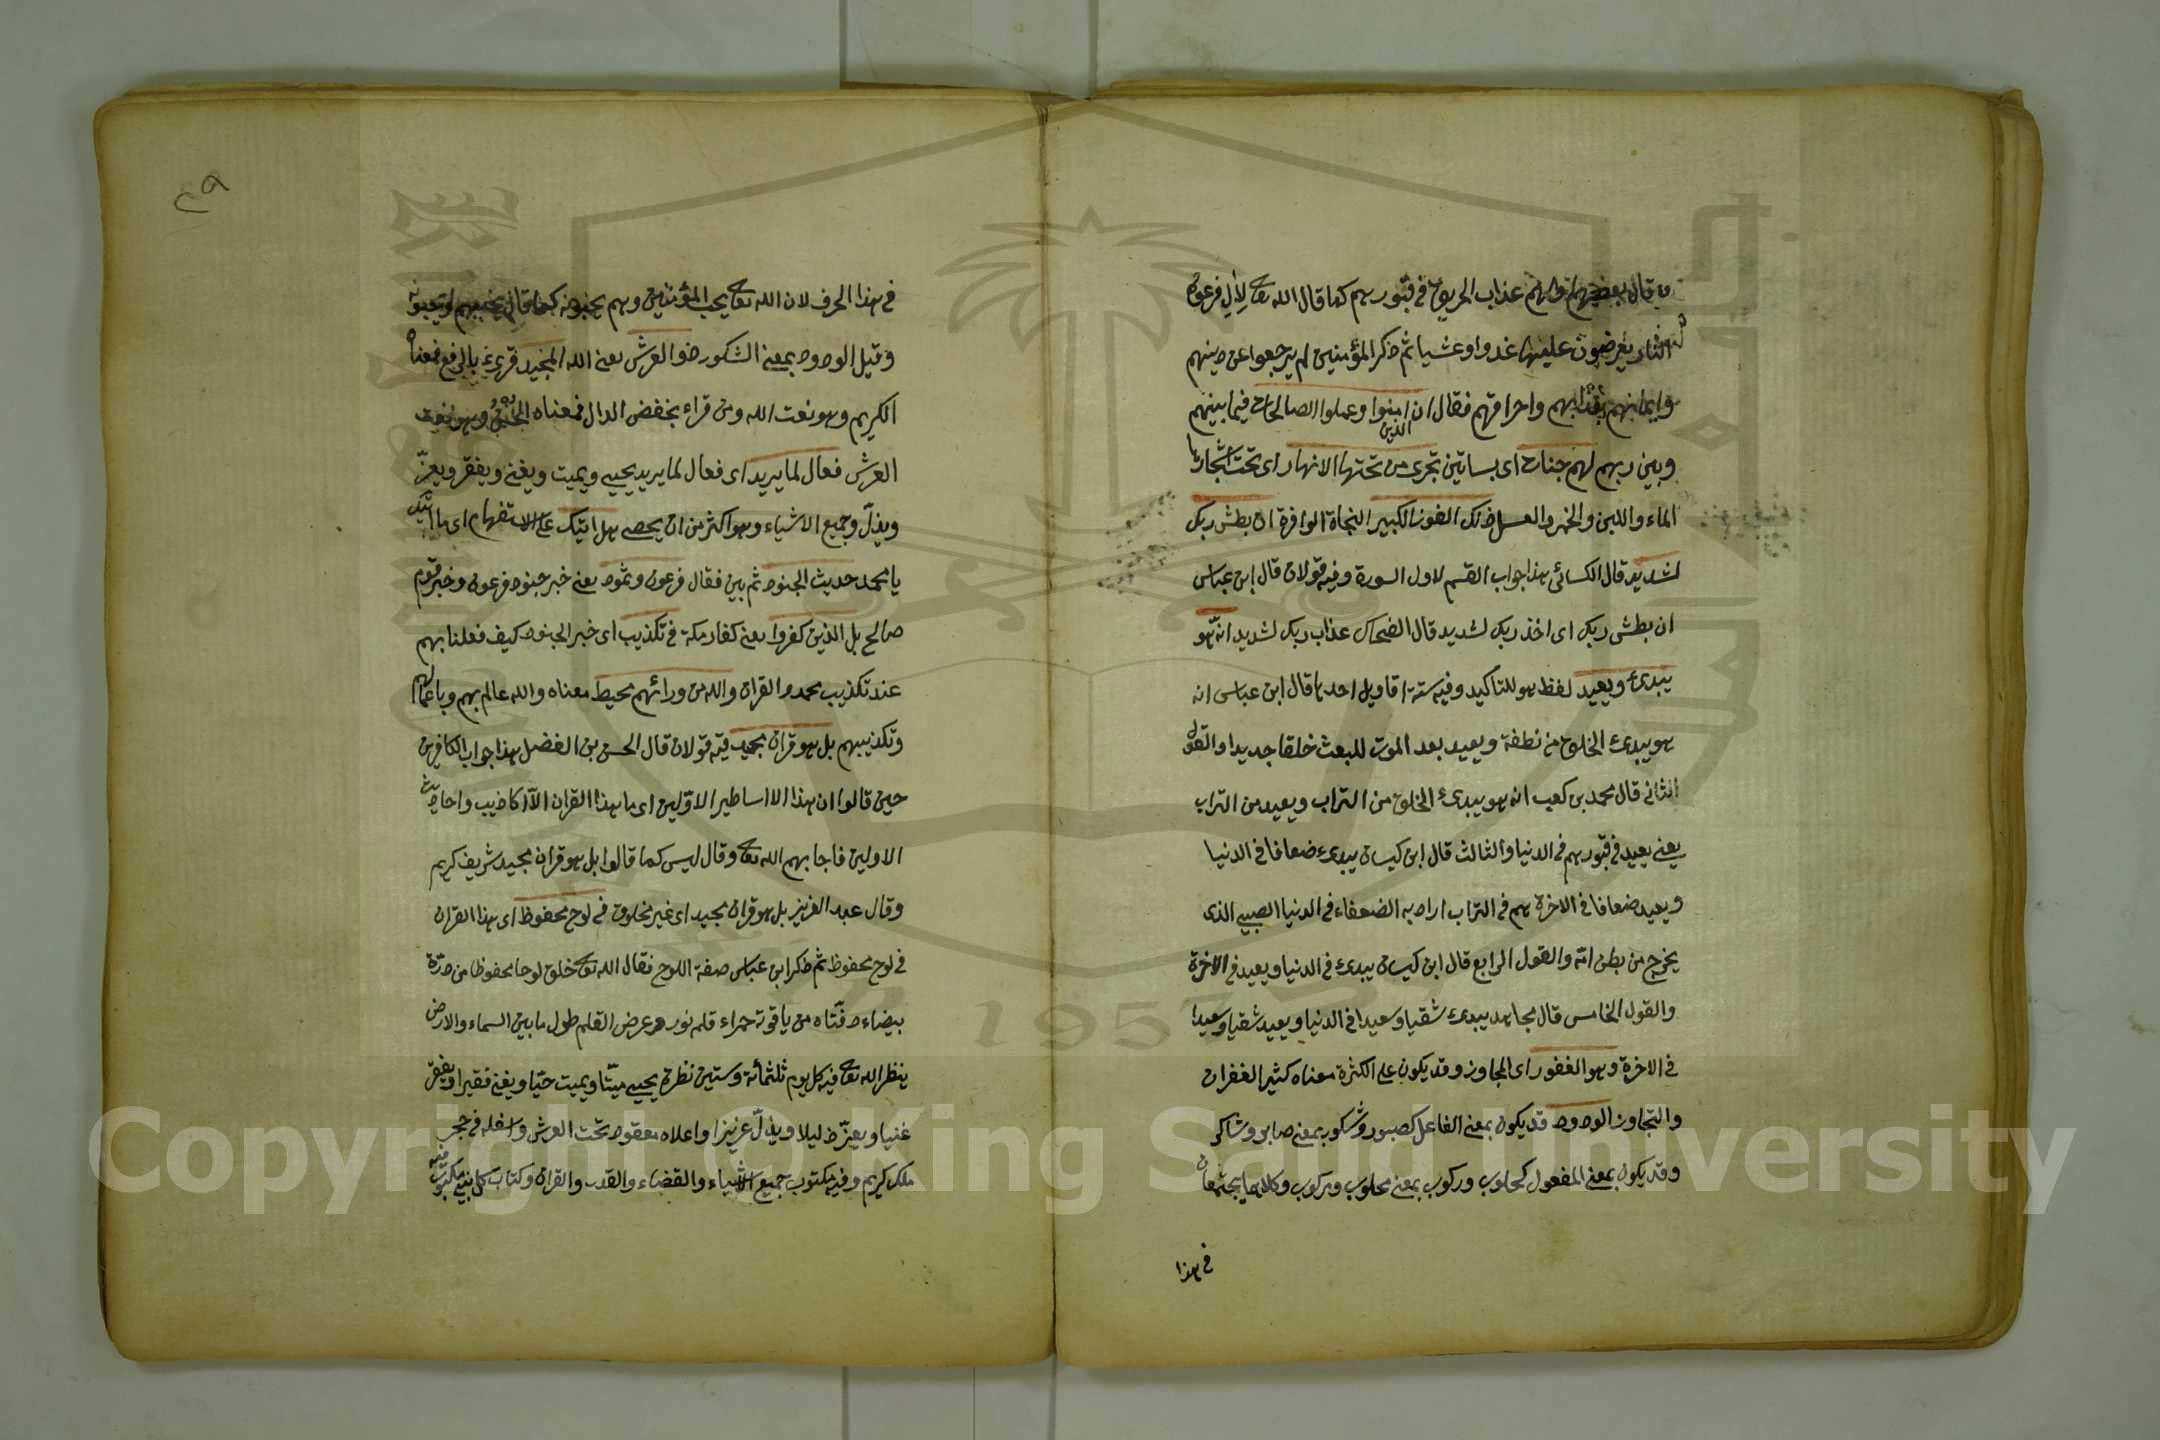 وقال بعضهم ولهم عذاب الحريق في قبورهم كما قال الله تعالى لآل فرعون
النار يعرضون عليها غدوا وعشيا ثم ذكر المؤمنين لم يرجعوا عن دينهم
وايمانهم بعذابهم واحراقهم فقال ان الذين امنوا وعملوا الصالحات فيما بينهم
وبين ربهم لهم جنات اى بساتين تجرى من تحتها الانهار اى تحت اشجارها
الماء واللبن والخمر والعسل ذلك الفوز الكبير النجاة الوافرة ان بطش ربك
لشديد قال الكسائى هذا جواب القسم لاول السورة وفيه قولان قال ابن عباس
ان بطش ربك اى اخذ ربك لشديد قال الضحاك عذاب ربك لشديد انه هو
يبدئ ويعيد لفظ هو للتاكيد وفيه ستة اقاويل احدها قال ابن عباس انه
هو يبدئ الخلق من نطفة ويعيد بعد الموت للبعث خلقا جديدا والقول
الثانى قال محمد بن كعب انه هو يبدئ الخلق من التراب ويعيد من التراب
يعنى يعيد فى قبورهم فى الدنيا والثالث قال ابن كيسان يبدئ ضعافا فى الدنيا
ويعيد ضعافا فى الاخرة هم فى التراب اراد به الضعفاء فى الدنيا الصبى الذى
يخرج من بطن امه والقول الرابع قال ابن كيسان يبدئ فى الدنيا ويعيد فى الاخرة
والقول الخامس قال مجاهد يبدئ شقيا وسعيدا فى الدنيا ويعيد شقيا وسعيدا
فى الاخرة وهو الغفور اى المجاوز وقد يكون على الكثرة معناه كثير الغفران
والتجاوز الودود قد يكون بمعنى الفاعل كصبور وشكور بمعنى صابر وشاكر
وقد يكون بمعنى المفعول كحلوب وركوب بمعنى محلوب ومركوب وكلاهما يجتمعان
فى هذا
٢٩
فى هذا الحرف لان الله تعالى يحب المؤمنين وهم يحبونه كما قال يحبهم ويحبونه
وقيل الودود بمعنى الشكور ذو العرش يعنى الله المجيد قرئ بالرفع فمعناه
الكريم وهو نعت الله ومن قراء بخفض الدال فمعناه وهو نعت
العرش فعال لما يريد اى فعال لما يريد يحيى ويميت ويغنى ويفقر ويعز
ويذل وجميع الاشياء وهو اكثر من ان يحصى هل اتيك على الاستفهام اى ما اتيك
يا محمد حديث الجنود ثم بين فقال فرعون وثمود يعنى خبر جنود فرعون وخبر قوم
صالح بل الذين كفروا يعنى كفار مكة فى تكذيب اى خبر الجنود كيف فعلنا بهم
عند تكذيب محمد والقران والله من ورائهم محيط معناه والله عالم بهم وباعمالهم
وتكذيبهم بل هو قران مجيد فيه قولان قال الحسن بن الفضل هذا جواب الكافرين
حين قالوا ان هذا الا اساطير الاولين اى ما هذا القران الا اكاذيب واحاديث
الاولين فاجابهم الله تعالى وقال ليس كما قالوا بل هو قران مجيد شريف كريم
وقال عبد العزيز بل هو قران مجيد اى غير مخلوق فى لوح محفوظ اى هذا القران
فى لوح محفوظ ثم ذكر ابن عباس صفة اللوح فقال الله تعالى خلق لوحا محفوظا من درة
بيضاء دفتاه من ياقوتة حمراء قلمه نور وعرض القلم طول ما بين السماء والارض
ينظر الله تعالى فيه كل يوم ثلثمائة وستين نظرة يحيى ميتا ويميت حيا ويغنى فقيرا ويفقر
غنيا ويعز ذليلا ويذل عزيزا واعلاه معقود تحت العرش واسفله فى حجر
ملك كريم وفيه مكتوب جميع الاشياء والقضاء والقدر والقران وكتاب كل نبى مكتوب فيه
Copyright © King Saud University
1957